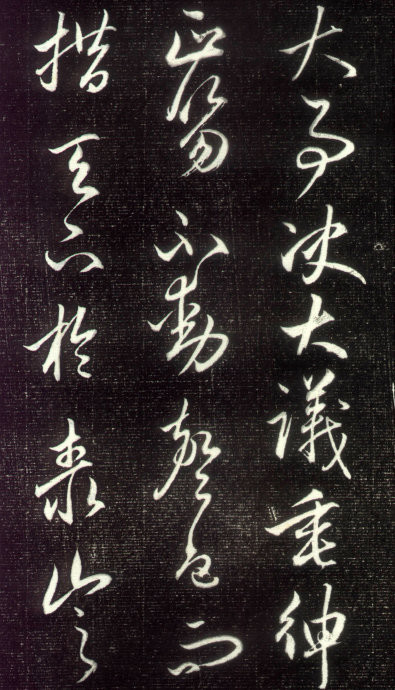 大事決大議垂紳
正笏不動聲色而
措天下於泰山之